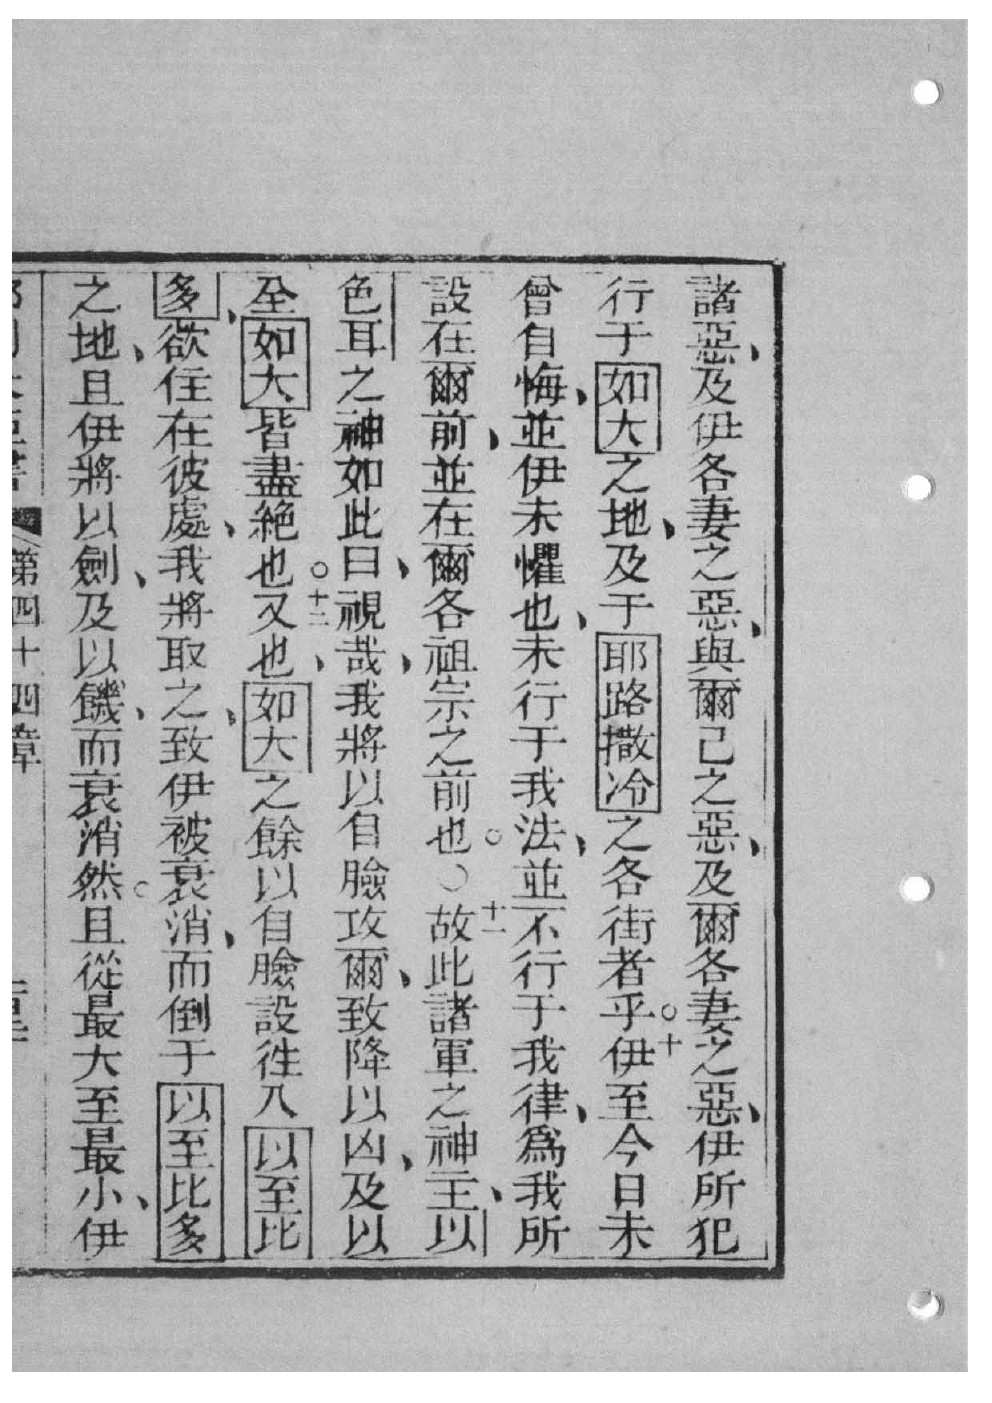 諸惡、及伊各妻之惡、與爾己之惡、及爾各妻之惡、伊所犯
行于如大之地、及于耶路撒冷之各街者乎。十伊至今日未
曾自悔、並伊未懼也、未行于我法、並不行于我律、爲我所
設在爾前、並在爾各祖宗之前也。○十一故此諸軍之神主、以
色耳之神如此曰、視哉、我將以自臉攻爾、致降以凶、及以
全如大皆盡絕也。十二又也、如大之餘以自臉設徃入以至比
多、欲住在彼處、我將取之、致伊被衰消、而倒于以至比多
之地、且伊將以劍、及以饑、而衰消然。且從最大至最小、伊
第四十四章